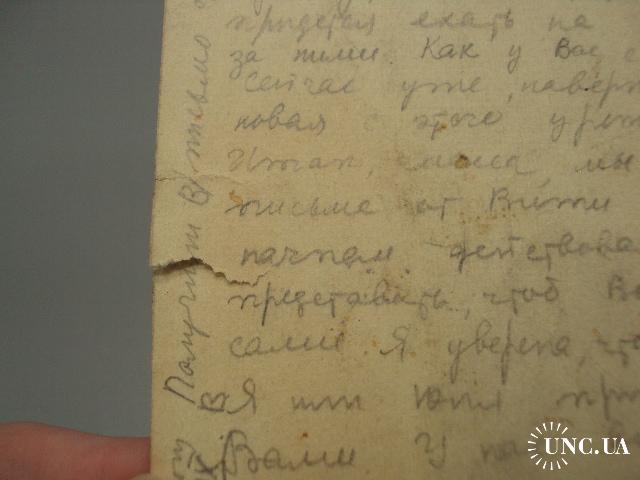 придется ехать на
за ними. Как у Вас с
Сейчас уже, наверн
новая с этого уро
Итак, мама, мы
письма от Вити
начнем действова
представить, чтоб Ва
сами. Я уверена, что
Я или Юля при
Вами У на
Получили В письмо
В
UNC.UA